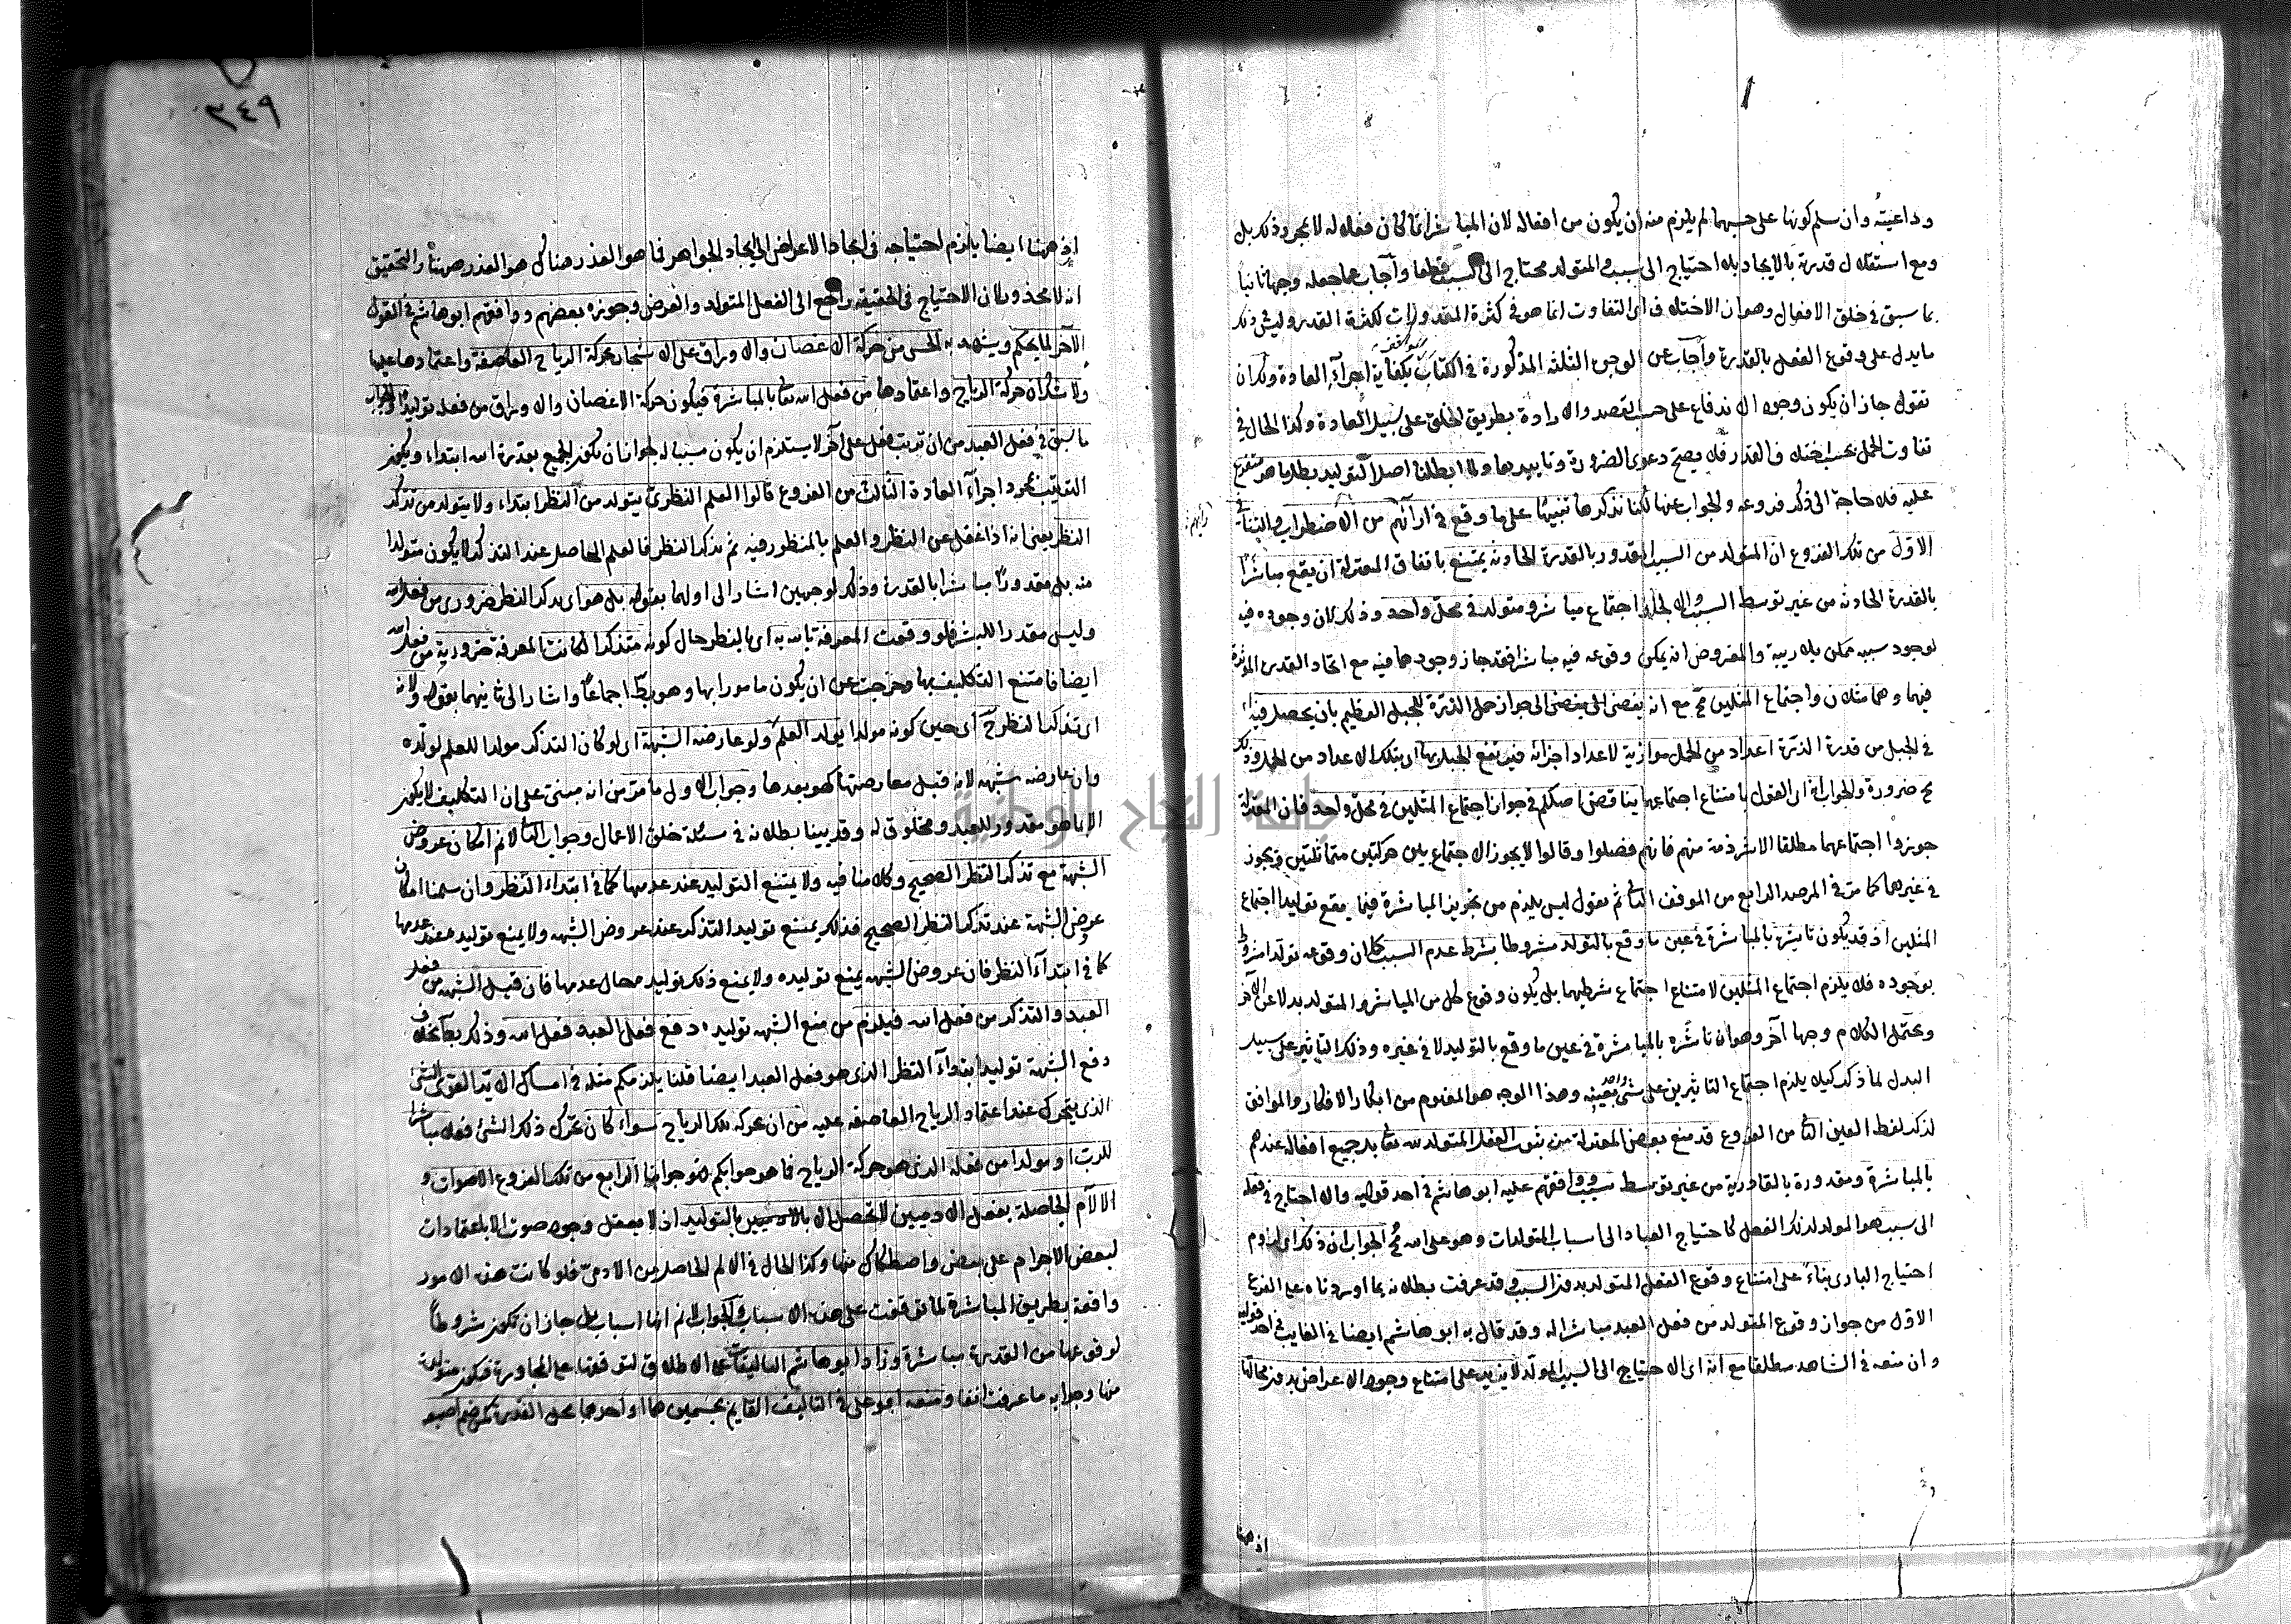 وداعيته وان سلم كونها على حسبهما لم يلزم منه ان يكون من افعاله لان المباشر انما كان فعلا له لا بمجرد ذلك بل
ومع استقلال قدرته بالايجاد بلا احتياج الى سبب والمتولد محتاج الى السبب قطعا وأجاب عما جعله وجها ثانيا
بما سبق في خلق الافعال وهو ان الاختلاف اي التفاوت انما هو في كثرة المقدورات لكثرة القدر وليس ذلك
مما يدل على وقوع الفعل بالقدرة وأجاب عن الوجوه الثلثة المذكورة في الكتاب بكفاية اجرآء العادة ولك ان
تقول جاز ان يكون وجوه الاندفاع على حسب القصد والارادة بطريق الخلق على سبيل العادة وكذا الحال في
تفاوت الحمل بحسب اختلاف القدر فلا يصح دعوى الضرورة وتاييدها ولما ابطلنا اصل التوليد بطل ما هو متفرع
عليه فلا حاجة الى ذكر فروعه والجواب عنها لكنا نذكرها تنبيها على ما وقع في ارآئهم من الاضطراب والتنافي
الاول من تلك الفروع ان المتولد من السبب المقدور بالقدرة الحادثة يمتنع باتفاق المعتزلة ان يقع مباشرا
بالقدرة الحادثة من غير توسط السبب والا لجاز اجتماع مباشر ومتولد في محل واحد وذلك لان وجوده فيه
لوجود سببه ممكن بلا ريبة والمفروض انه يمكن وقوعه فيه مباشرا فقد جاز وجودهما فيه مع اتحاد القدرة المؤثرة
فيهما وهما مثلان واجتماع المثلين مح مع انه يفضى الى جواز حمل الذرة للجبل العظيم بان يحصل فيه اي
في الجبل من قدرة الذرة اعداد من الحمل موازية لاعداد اجزائه فيرتفع الجبل بها اي بتلك الاعداد من الحمل وذلك
مح ضرورة والجواب انه اى القول بامتناع اجتماعهما يناقض اصلكم في جواز اجتماع المثلين في محل واحد فان المعتزلة
جوزوا اجتماعهما مطلقا الا شرذمة منهم فانهم فصلوا وقالوا لا يجوز الاجتماع بين حركتين متماثلتين ويجوز
في غيرهما كما مر في المرصد الرابع من الموقف الثاني ثم نقول ليس يلزم من تجويز المباشرة فيما يقع توليدا اجتماع
المثلين اذ قد يكون تاثيره بالمباشرة في عين ما وقع بالتولد مشروطا بشرط عدم السبب كما ان وقوعه تولدا مشروط
بوجوده فلا يلزم اجتماع المثلين لامتناع اجتماع شرطيهما بل يكون وقوع كل من المباشر والمتولد بدلا عن الآخر
ويحتمل الكلام وجها آخر وهو ان تاثيره بالمباشرة في عين ما وقع بالتوليد لا في غيره وذلك التاثير على سبيل
البدل لما ذكر كيلا يلزم اجتماع التاثيرين على شئ واحد بعينه وهذا الوجه هو المفهوم من ابكار الافكار والموافق
لذكر لفظ العين الثاني من الفروع قد منع بعض المعتزلة من ثبوت الفعل المتولد لله تعالى بل جميع افعاله عندهم
بالمباشرة ومقدورة بالقادرية من غير توسط سبب ووافقهم عليه ابو هاشم في احد قوليه والا احتاج في فعله
الى سبب هو المولد لذلك الفعل كاحتياج العباد الى اسباب المتولدات وهو على الله مح الجواب ان ذلك اى لزوم
احتياج البارى بناء على امتناع وقوع الفعل المتولد بدون السبب وقد عرفت بطلانه بما اوردناه على الفرع
الاول من جواز وقوع المتولد من فعل العبد مباشرا له وقد قال به ابو هاشم ايضا في الغايب في احد قوليه
وان منعه في الشاهد مطلقا مع انه اى الاحتياج الى السبب المولد لا يزيد على امتناع وجود الاعراض بدون محالها
اذ ههنا
٣٤٩
اذ ههنا ايضا يلزم احتياجه في ايجاد الاعراض الى ايجاد الجواهر فما هو العذر هناك هو العذر ههنا والتحقيق
انه لا محذور لان الاحتياج في الحقيقة راجع الى الفعل المتولد والعرض وجوزه بعضهم ووافقهم ابو هاشم في القول
الآخر لما يحكم ويشهد به الحس من حركة الاغصان والاوراق على الاشجار بحركة الرياح العاصفة واعتمادها عليها
ولا شك ان حركة الرياح واعتمادها من فعل الله تعالى بالمباشرة فيكون حركة الاغصان والاوراق من فعله توليدا والجواب
ما سبق في فعل العبد من ان ترتب فعل على آخر لا يستلزم ان يكون مسببا له لجواز ان يكون الجميع بقدرة الله ابتداء ويكون
الترتيب بمجرد اجرآء العادة الثالث من الفروع قالوا العلم النظرى يتولد من النظر ابتداء ولا يتولد من تذكر
النظر يعنى انه اذا غفل عن النظر والعلم بالمنظور فيه ثم تذكر النظر فالعلم الحاصل عند التذكر لا يكون متولدا
منه بل مقدورا مباشرا بالقدرة وذلك لوجهين اشار الى اولهما بقوله بل هو اى تذكر النظر ضرورى من فعل الله
وليس مقدرا للبشر فلو وقعت المعرفة بالله به اى بالنظر حال كونه متذكرا لكانت المعرفة ضرورية من فعل الله
ايضا فامتنع التكليف بها وخرجت عن ان يكون مامورا بها وهو بط اجماعا واشار الى ثانيهما بقوله ولانه
اى تذكر النظر ح اى حين كونه مولدا يولد العلم ولو عارضه الشبهة اى لو كان التذكر مولدا للعلم لولده
وان عارضه شبهة لانه قبل معارضتها كهو بعدها وجواب الاول ما مر من انه مبنى على ان التكليف لا يكون
الا بما هو مقدور للعبد ومخلوق له وقد بينا بطلانه في مسئلة خلق الاعمال وجواب الثاني لا نم امكان عروض
الشبهة مع تذكر النظر الصحيح وكلامنا فيه ولا يمتنع التوليد عند عدمها كما في ابتداء النظر وان سلمنا امكان
عروض الشبهة عند تذكر النظر الصحيح فذلك يمنع توليد التذكر عند عروض الشبهه ولا يمنع توليده عند عدمها
كما في ابتدآء النظر فان عروض الشبهه يمنع توليده ولا يمنع ذلك توليده حال عدمها فان قيل الشبهه من فعل
العبد والتذكر من فعل الله فيلزم من منع الشبهه توليده دفع فعل العبد فعل الله وذلك بط بخلاف
دفع الشبهة توليد ابتدآء النظر الذى هو فعل العبد ايضا قلنا يلزمكم مثله في امساك الايد القوى الشئ
الذى يتحرك عند اعتماد الرياح العاصفه عليه من ان تحركه تلك الرياح سواء كان تحرك ذلك الشئ فعلا مباشرا
للرب او مولدا من فعله الذى هو حركة الرياح فما هو جوابكم فهو جوابنا الرابع من تلك الفروع الاصوات و
الآلام الحاصلة بفعل الادميين لا تحصل الا بالتوليد اذ لا يعقل وجود صوت الا باعتمادات
لبعض الاجرام على بعض واصطكاك منها وكذا الحال في الالم الحاصل من الادمى فلو كانت هذه الامور
واقعة بطريق المباشرة لما توقفت على هذه الاسباب والجواب لا نم انها اسباب بل جاز ان يكون شروطا
لوقوعها من القدرة مباشرة وزاد ابو هاشم التاليفات على الاطلاق لتوقفها على المجاورة فتكون متولدة
منها وجوابه ما عرفت انفا ومنعه ابو على في التاليف القايم بجسمين هما او احدهما محل القدرة كمن ضم اصبعه